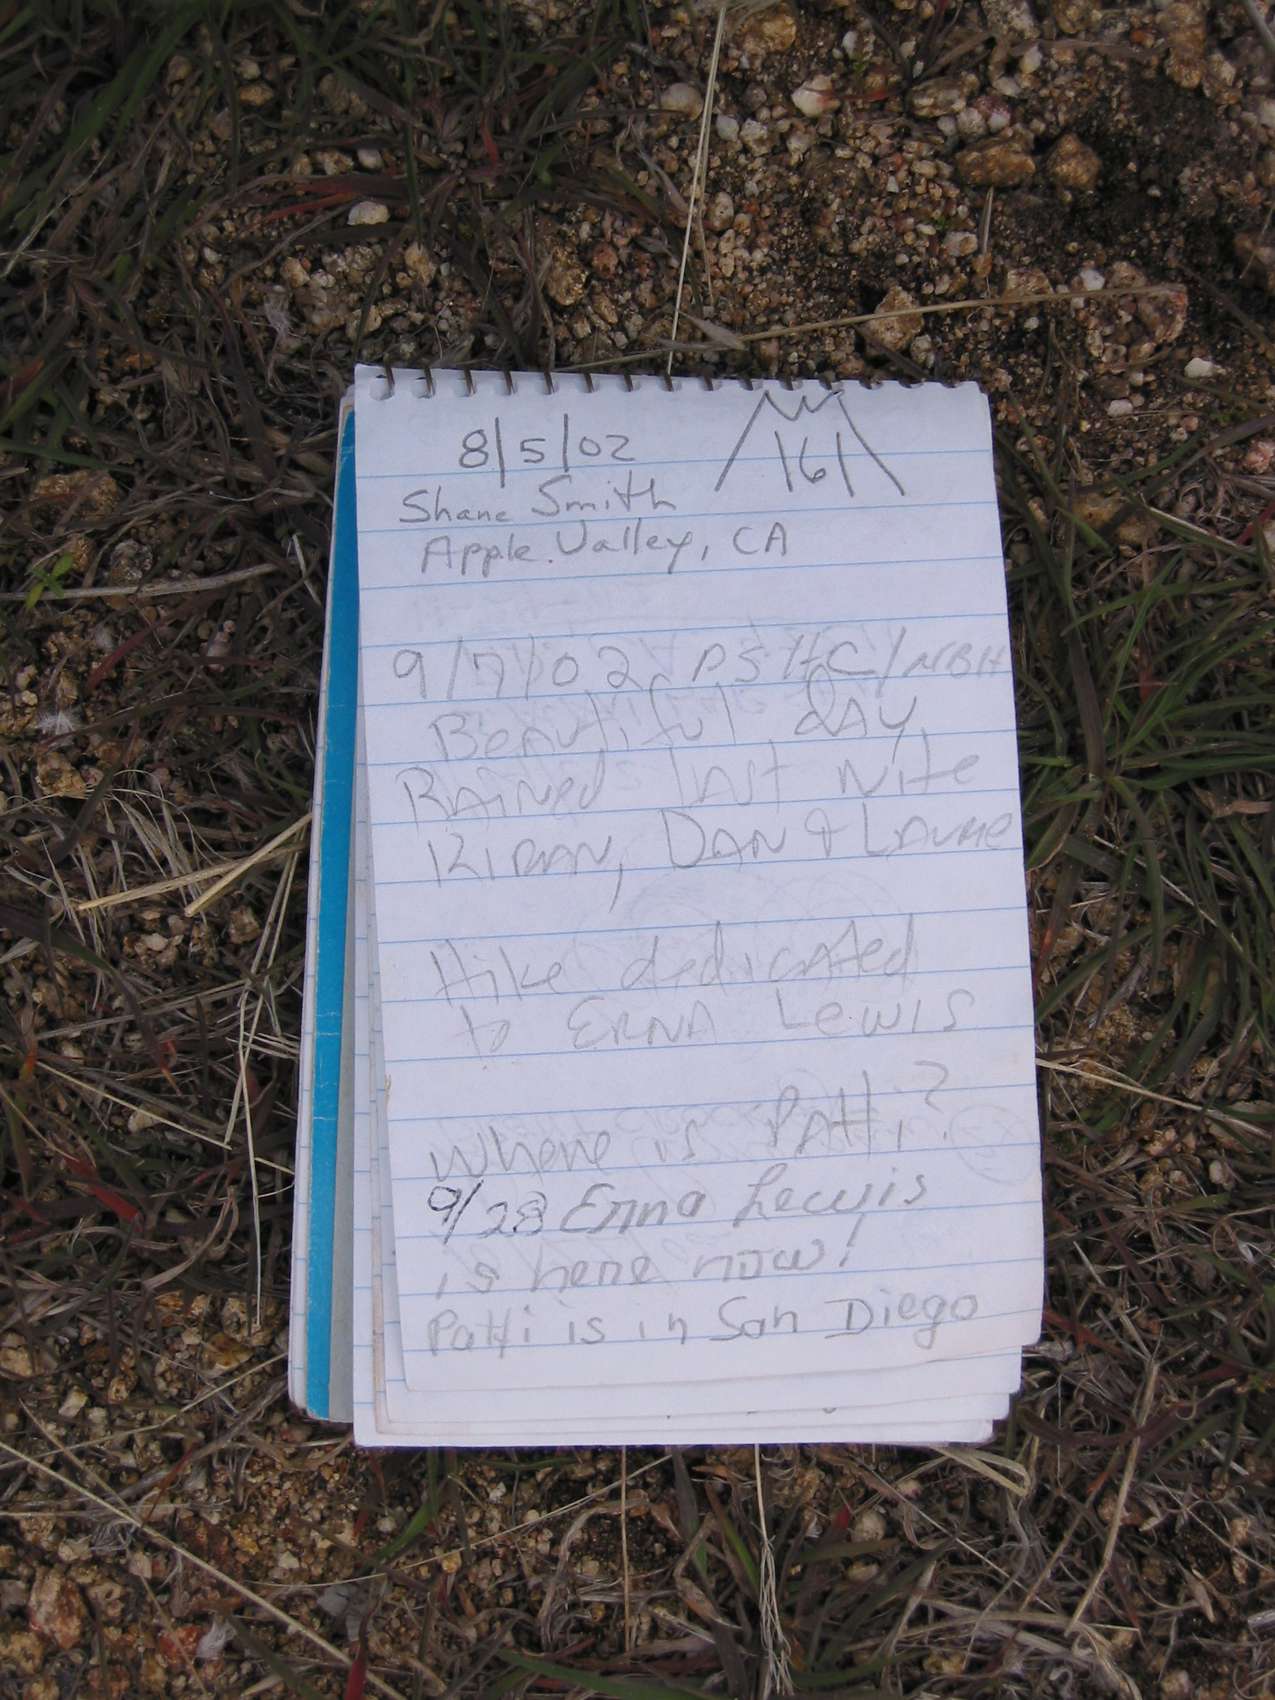 8/5/02 161
Shane Smith
Apple Valley, CA
9/7/02 PSHC/NBH
Beautiful day
Rained last nite
Kiran, Dan & Laurie
Hike dedicated
to Erna Lewis
Where is Patti?
9/28 Erna Lewis
is here now!
Patti is in San Diego